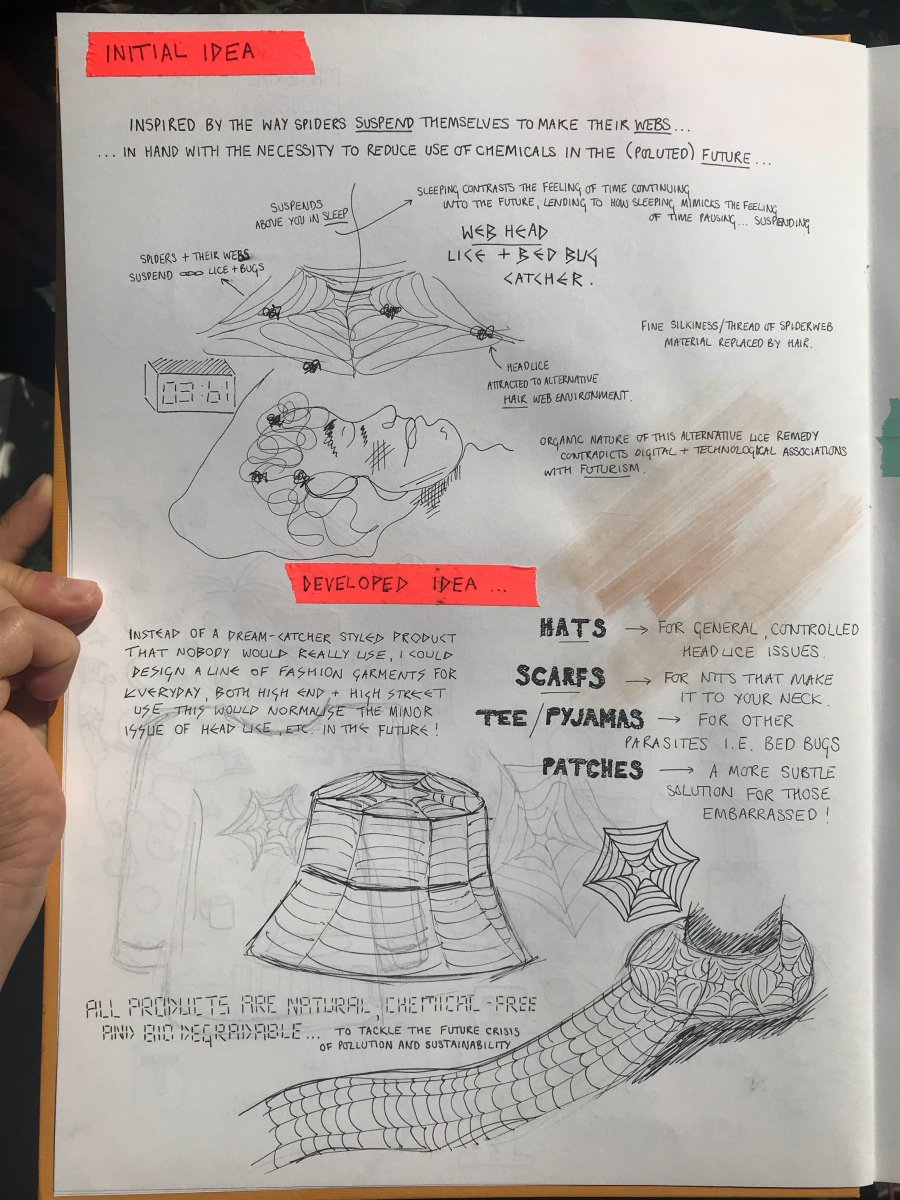 INITIAL IDEA
INSPIRED BY THE WAY SPIDERS SUSPEND THEMSELVES TO MAKE THEIR WEBS...
...IN HAND WITH THE NECESSITY TO REDUCE USE OF CHEMICALS IN THE (POLUTED) FUTURE...
SUSPENDS
ABOVE YOU IN SLEEP
SLEEPING CONTRASTS THE FEELING OF TIME CONTINUING
INTO THE FUTURE, LENDING TO HOW SLEEPING MIMICKS THE FEELING
OF TIME PAUSING... SUSPENDING
WEB HEAD
LICE + BED BUG
CATCHER.
SPIDERS + THEIR WEBS
SUSPEND LICE + BUGS
FINE SILKINESS/THREAD OF SPIDERWEB
MATERIAL REPLACED BY HAIR.
HEADLICE
ATTRACTED TO ALTERNATIVE
HAIR WEB ENVIRONMENT.
03:61
ORGANIC NATURE OF THIS ALTERNATIVE LICE REMEDY
CONTRADICTS DIGITAL + TECHNOLOGICAL ASSOCIATIONS
WITH FUTURISM.
DEVELOPED IDEA...
INSTEAD OF A DREAM-CATCHER STYLED PRODUCT
THAT NOBODY WOULD REALLY USE, I COULD
DESIGN A LINE OF FASHION GARMENTS FOR
EVERYDAY, BOTH HIGH END + HIGH STREET
USE. THIS WOULD NORMALISE THE MINOR
ISSUE OF HEAD LICE, ETC. IN THE FUTURE!
HATS → FOR GENERAL, CONTROLLED
HEADLICE ISSUES.
SCARFS → FOR NITS THAT MAKE
IT TO YOUR NECK.
TEE/PYJAMAS → FOR OTHER
PARASITES I.E. BED BUGS
PATCHES → A MORE SUBTLE
SOLUTION FOR THOSE
EMBARRASSED!
ALL PRODUCTS ARE NATURAL, CHEMICAL-FREE
AND BIODEGRADABLE... TO TACKLE THE FUTURE CRISIS
OF POLLUTION AND SUSTAINABILITY